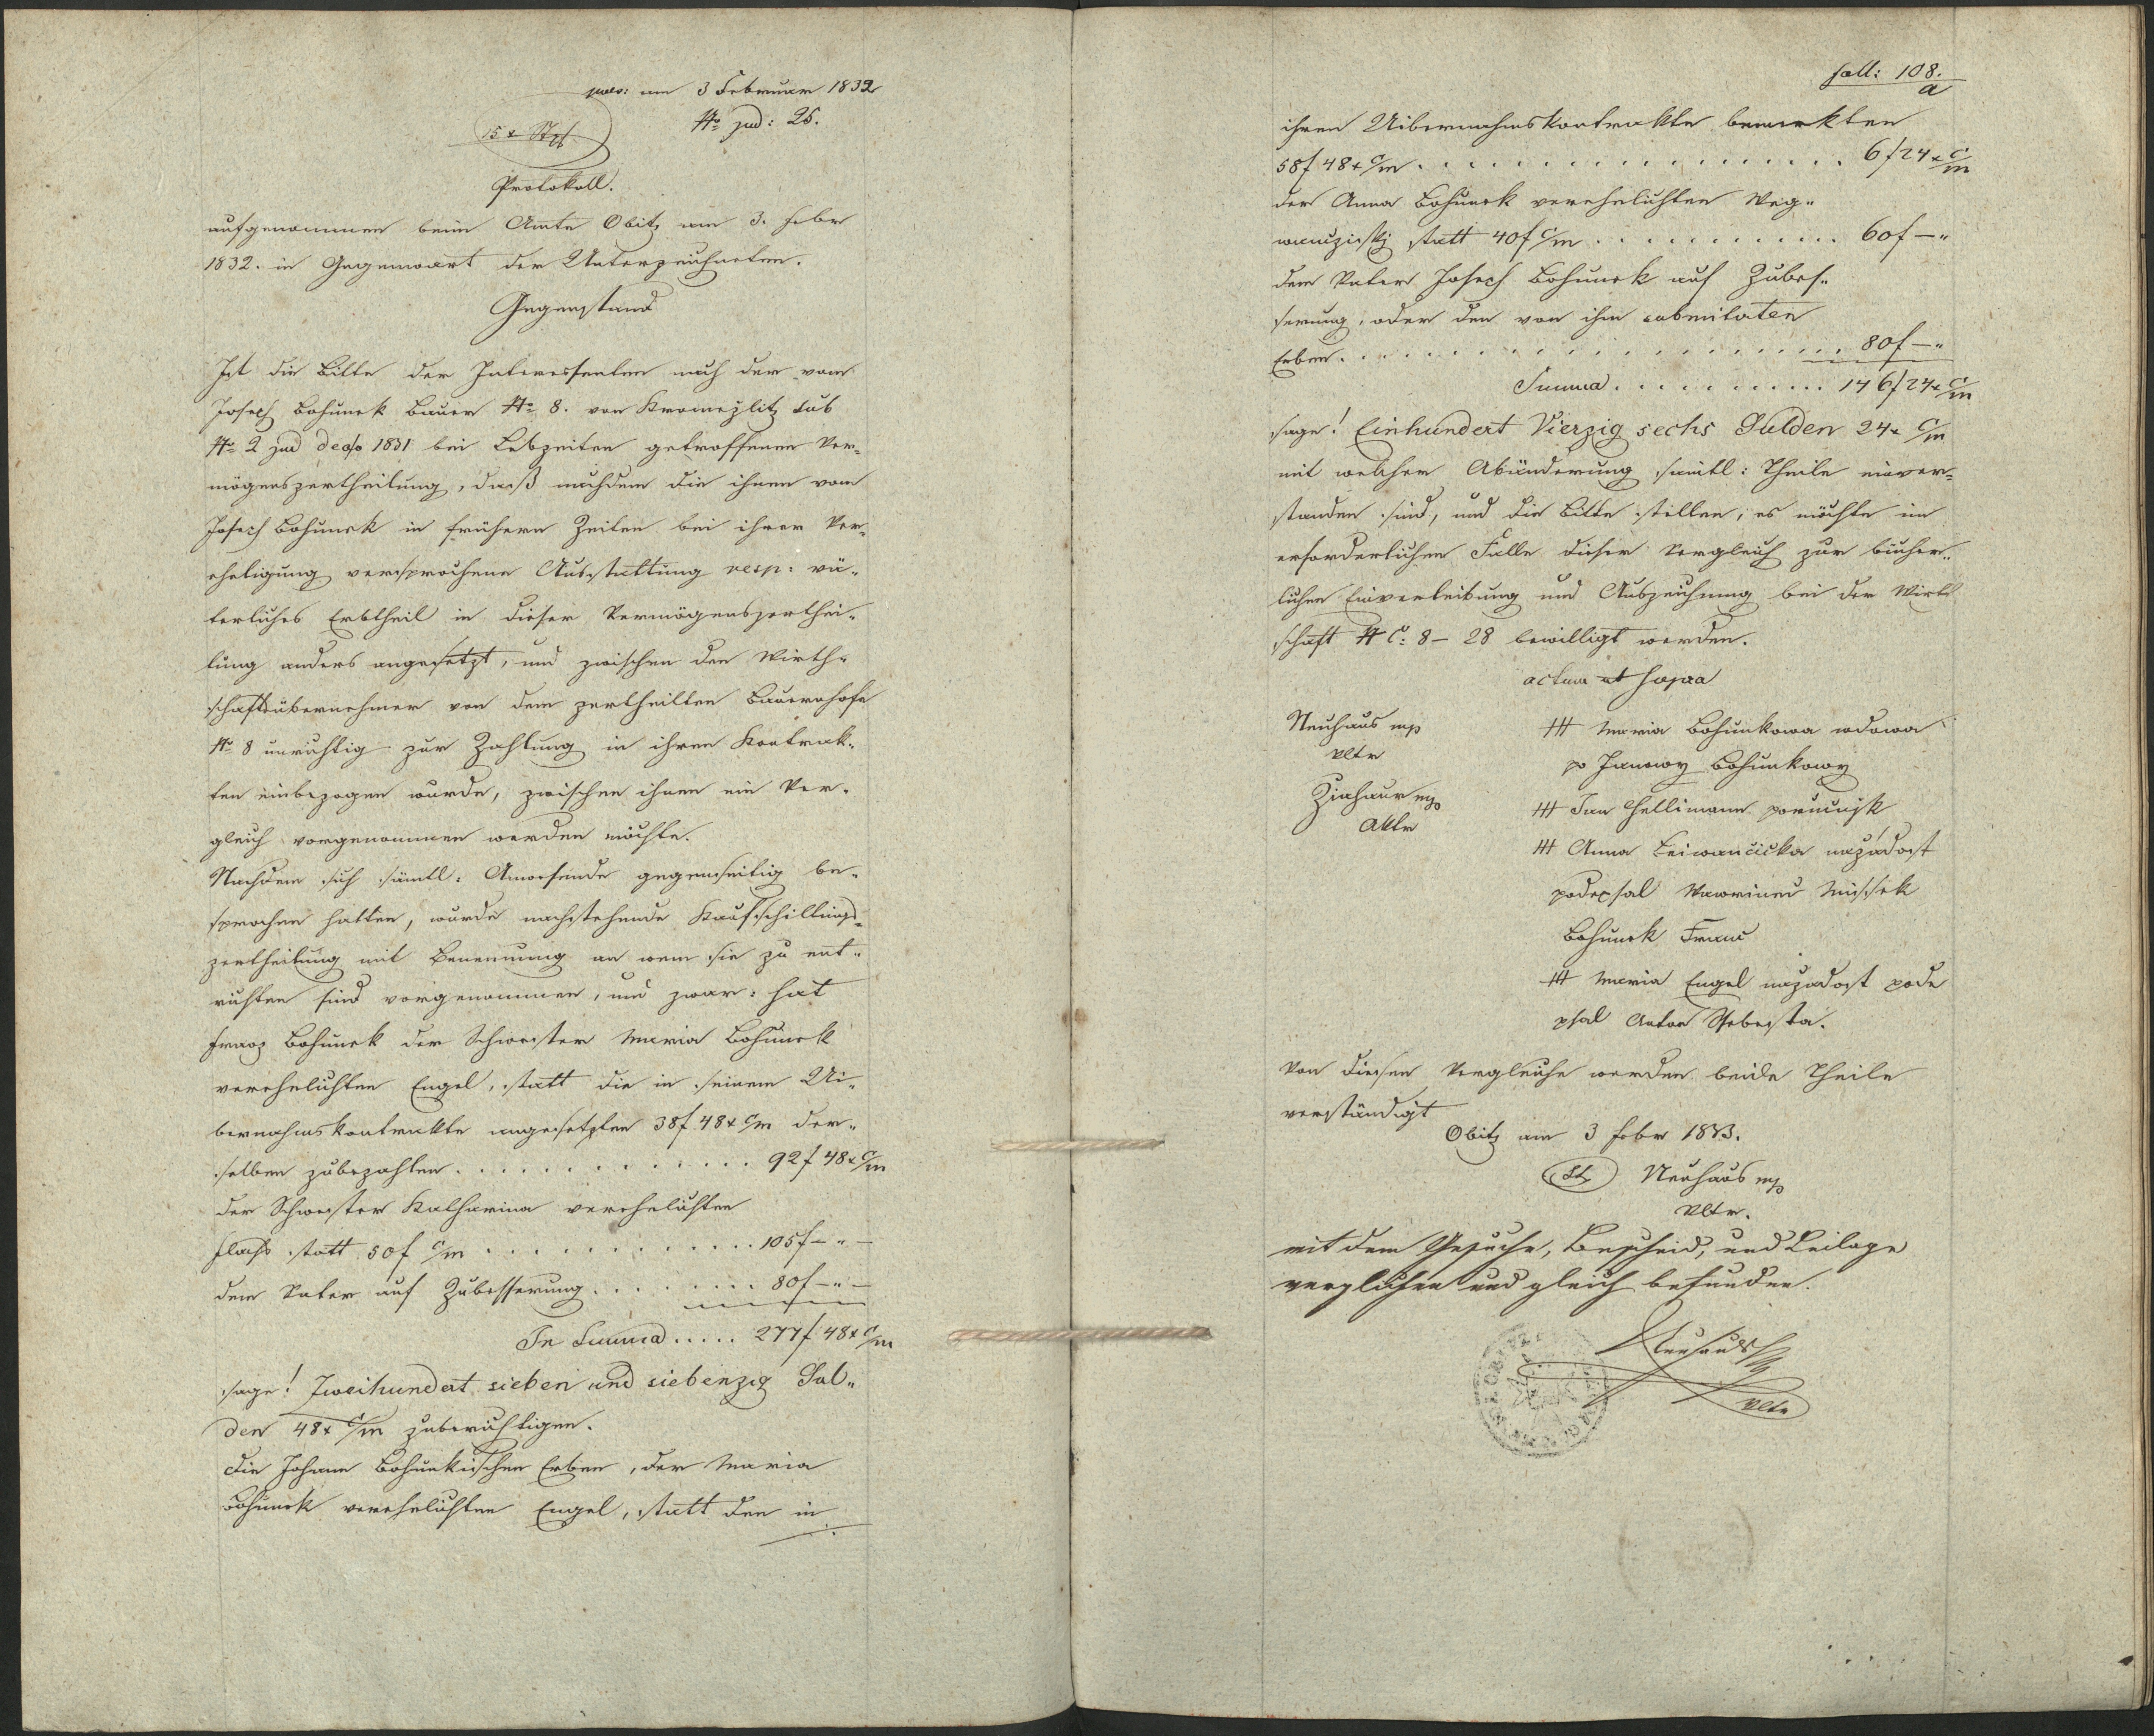 pres: am 3 Februar 1832
No jud: 25.
15 x Stpl
Protokoll.
aufgenommen beim Amte Obitz am 3. Febr
1832. in Gegenwart der Unterzeichneten.
Gegenstand
Ist die Bitte der Interessenten nach der vom
Joseph Bohunek Bauer No 8. von Kromežlitz sub
No 2 jud de ao 1831 bei Lebzeiten getroffenen Ver-
mögenszertheilung, daß nachdem die ihnen vom
Joseph Bohunek in frühern Zeiten bei ihrer Ver-
eheligung versprochene Ausstattung resp: vä-
terliches Erbtheil in dieser Vermögenszerthei-
lung anders angesetzt, und zwischen den Wirth-
schaftsübernehmer von dem zertheilten Bauernhofe
No 8 unrichtig zur Zahlung in ihren Kontrak-
ten einbezogen wurde, zwischen ihnen ein Ver-
gleich vorgenommen werden möchte.
Nachdem sich sämtl: Anwesende gegenseitig be-
sprochen hatten, wurde nachstehende Kaufschillings-
zertheilung mit Benennung an wem sie zu ent-
richten sind vorgenommen, und zwar: hat
Franz Bohunek der Schwester Maria Bohunek
verehelichten Engel, statt die in seinem Ui-
bernahmskontrakte angesetzten 38f 48x C/m der-
selben zubezahlen. . . . . . . . . . . . 92f 48x C/m
der Schwester Katharina verehelichten
Flachs statt 50f C/m . . . . . . . . . . . . 105f – " –
dem Vater auf Zubesserung. . . . . . . . 80f – " –
In Summa . . . . . 277f 48x C/m
sage! Zweihundert sieben und siebenzig Gul-
den 48x C/m zuberichtigen.
Die Johann Bohunekischen Erben, der Maria
Bohunek verehelichten Engel, statt den in
fall: 108.
a
ihren Uibernahmskontrakte bemerkten
58f 48x C/m . . . . . . . . . . . . . . . . 6f 24x C/m
der Anna Bohunek verehelichten
statt 40f C/m . . . . . . . . . . . 60f – "
dem Vater Joseph Bohunek auf Zubes-
serung, oder den von ihm
Erben. . . . . . . . . . . . . . . . . . . . 80f – "
Summa . . . . . . . . . . 146f 24x C/m
sage! Einhundert Vierzig sechs Gulden 24x C/m
mit welcher Abänderung sämtl: Theile einver-
standen sind, und die Bitte stellen, es möchte im
erforderlichen Falle dieser Vergleich zur bücher-
lichen Einverleibung und Auszeichnung bei der Wirth
schaft N C: 8 – 28 bewilligt werden.
actum ut supra
Neuhaus mp
Vltr
mp
Aktr
+++ Maria Bohunkowa wdowa
po Janowy Bohunkowy
+++ Jan Hellimann porucnjk
+++ Anna nažadost
podepsal Wawrinec
Bohunek Franc
+++ Maria Engel nažadost pode
psal Anton Schebesta.
Von diesen Vergleiche werden beide Theile
verständigt
Obitz am 3 Febr 1833.
LS Neuhaus mp
Vltr.
mit dem Gesuche, Bescheid, und Beilage
verglichen und gleich befunden.
Neuhaus mp
Vltr